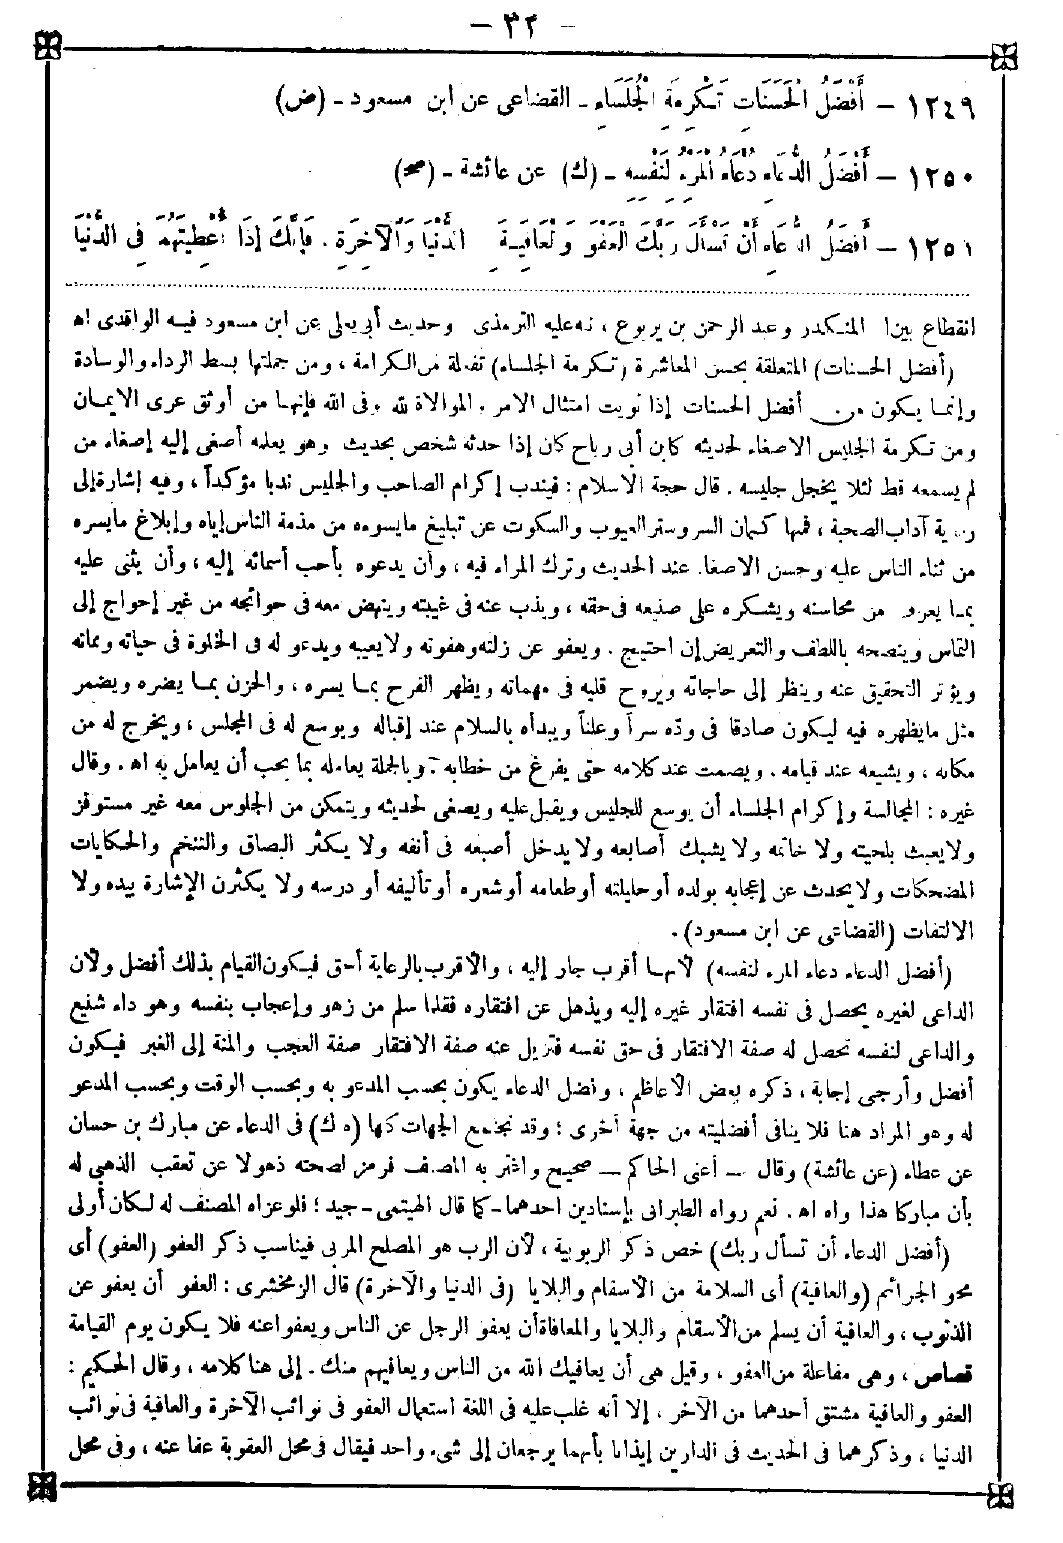 — ٣٢ —
١٢٤٩ — أَفْضَلُ الْحَسَنَاتِ تَكْرِمَةُ الْجُلَسَاءِ ـ القضاعى عن ابن مسعود ـ (ض)
١٢٥٠ — أَفْضَلُ الدُّعَاءِ دُعَاءُ الْمَرْءِ لِنَفْسِهِ ـ (ك) عن عائشة ـ (صح)
١٢٥١ — أَفْضَلُ الدُّعَاءِ أَنْ تَسْأَلَ رَبَّكَ الْعَفْوَ وَالْعَافِيَةَ فِي الدُّنْيَا وَالْآخِرَةِ ، فَإِنَّكَ إِذَا أُعْطِيتَهُمَا فِي الدُّنْيَا
انقطاع بين ابن المنكدر وعبد الرحمن بن يربوع ، نبه عليه الترمذى وحديث أبى يعلى عن ابن مسعود فيه الواقدى اه
(أفضل الحسنات) المتعلقة بحسن المعاشرة (تكرمة الجلساء) تفعلة من الكرامة ، ومن جملتها بسط الرداء والوسادة
وإنما يكون من أفضل الحسنات إذا نويت امتثال الأمر ، الموالاة لله وفى الله فإنها من أوثق عرى الايمان
ومن تكرمة الجليس الاصغاء لحديثه كابن أبى رباح كان إذا حدثه شخص بحديث وهو يعلمه أصغى إليه إصغاء من
لم يسمعه قط لئلا يخجل جليسه . قال حجة الاسلام : فيندب إكرام الصاحب والجليس ندبا مؤكداً ، وفيه إشارة إلى
رعاية آداب الصحبة ، فمنها كتمان السر وستر العيوب والسكوت عن تبليغ ما يسوءه من مذمة الناس إياه وإبلاغ ما يسره
من ثناء الناس عليه وحسن الاصغاء عند الحديث وترك المراء فيه ، وأن يدعوه بأحب أسمائه إليه ، وأن يثنى عليه
بما يعرف من محاسنه ويشكره على صنيعه فى حقه ، ويذب عنه فى غيبته وينهض معه فى حوائجه من غير إحواج إلى
التماس وينصحه باللطف والتعريض إن احتيج . ويعفو عن زلته وهفوته ولا يعيبه ويدعو له فى الخلوة فى حياته ومماته
ويؤثر التحقيق عنه وينظر إلى حاجاته ويروح قلبه فى مهماته ويظهر الفرح بما يسره ، والحزن بما يضره ويضمر
مثل ما يظهره فيه ليكون صادقا فى وده سراً وعلناً ويبدأه بالسلام عند إقباله ويوسع له فى المجلس ، ويخرج له من
مكانه ، ويشيعه عند قيامه . ويصمت عند كلامه حتى يفرغ من خطابه . وبالجملة يعامله بما يحب أن يعامل به اه . وقال
غيره : المجالسة وإكرام الجلساء أن يوسع للجليس ويقبل عليه ويصغى لحديثه ويتمكن من الجلوس معه غير مستوفز
ولا يعبث بلحيته ولا خاتمه ولا يشبك أصابعه ولا يدخل أصبعه فى أنفه ولا يكثر البصاق والتنخم والحكايات
المضحكات ولا يحدث عن إعجابه بولده أو حليلته أو طعامه أو شعره أو تأليفه أو درسه ولا يكثرن الإشارة بيده ولا
الالتفات (القضاعى عن ابن مسعود) .
(أفضل الدعاء دعاء المرء لنفسه) لأنها أقرب جار إليه ، والأقرب بالرعاية أحق فيكون القيام بذلك أفضل ولأن
الداعى لغيره يحصل فى نفسه افتقار غيره إليه ويذهل عن افتقاره فقلما سلم من زهو وإعجاب بنفسه وهو داء شنيع
والداعى لنفسه تحصل له صفة الافتقار فى حق نفسه فتزيل عنه صفة الافتقار صفة العجب والمنة إلى الغير فيكون
أفضل وأرجى إجابة ، ذكره بعض الأعاظم ، وفضل الدعاء يكون بحسب المدعو به وبحسب الوقت وبحسب المدعو
له وهو المراد هنا فلا ينافى أفضليته من جهة أخرى ؛ وقد تجتمع الجهات كلها (ه ك) فى الدعاء عن مبارك بن حسان
عن عطاء (عن عائشة) وقال — أعنى الحاكم — صحيح واغتر به المصنف فرمز لصحته ذهولا عن تعقب الذهبى له
بأن مباركا هذا واه اه . نعم رواه الطبرانى بإسنادين احدهما - كما قال الهيتمى - جيد ؛ فلو عزاه المصنف له لكان أولى
(أفضل الدعاء أن تسأل ربك) خص ذكر الربوبية ، لأن الرب هو المصلح المربى فيناسب ذكر العفو (العفو) أى
محو الجرائم (والعافية) أى السلامة من الأسقام والبلايا (فى الدنيا والآخرة) قال الزمخشرى : العفو أن يعفو عن
الذنوب ، والعافية أن يسلم من الأسقام والبلايا والمعافاة أن يعفو الرجل عن الناس ويعفوا عنه فلا يكون يوم القيامة
قصاص ، وهى مفاعلة من العفو ، وقيل هى أن يعافيك الله من الناس ويعافيهم منك . إلى هنا كلامه ، وقال الحكيم :
العفو والعافية مشتق أحدهما من الآخر ، إلا أنه غلب عليه فى اللغة استعمال العفو فى نوائب الآخرة والعافية فى نوائب
الدنيا ، وذكرهما فى الحديث فى الدارين إيذانا بأنهما يرجعان إلى شىء واحد فيقال فى محل العقوبة عفا عنه ، وفى محل